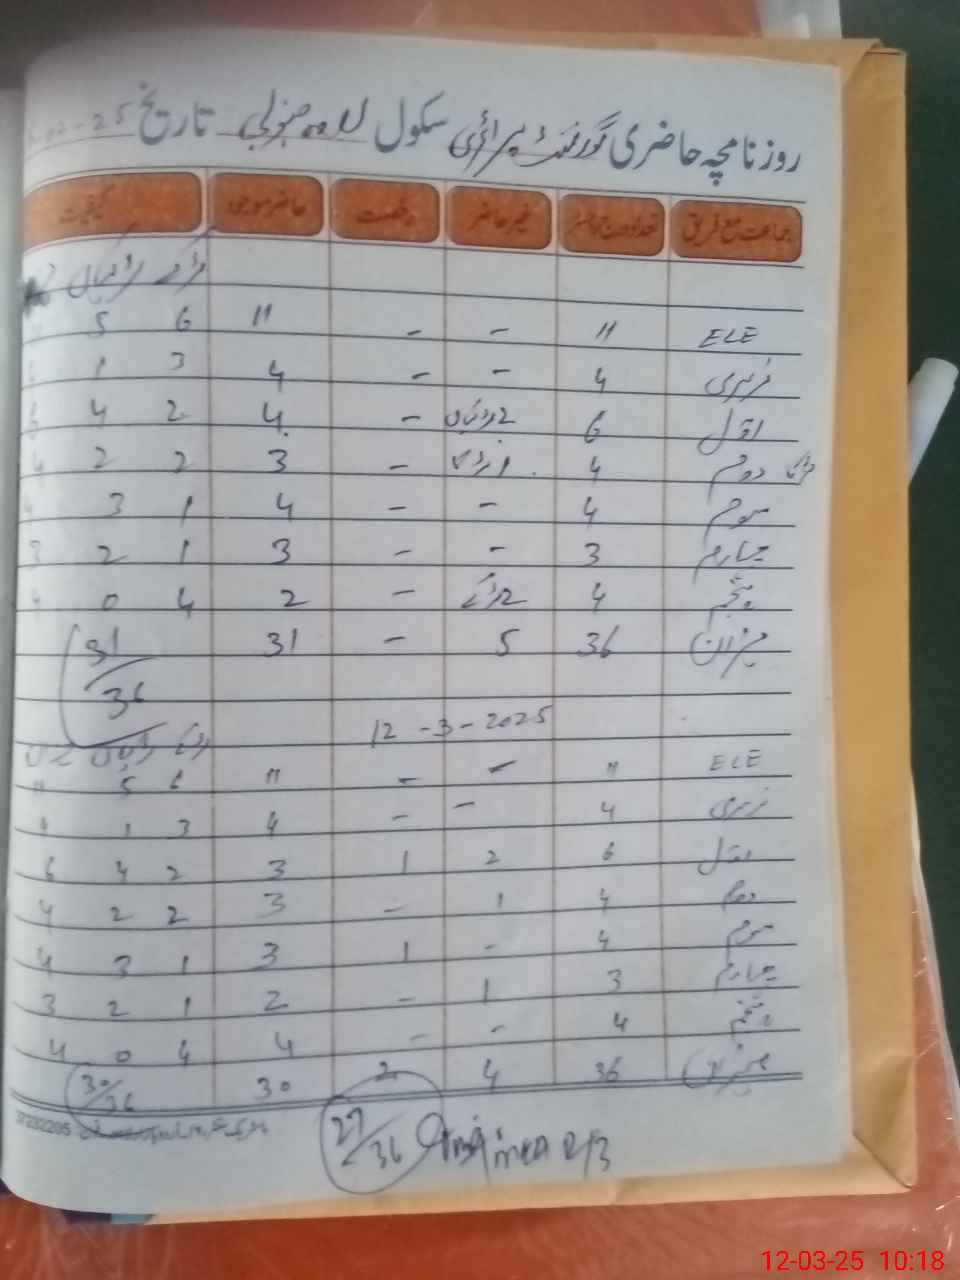 روزنامچہ حاضری گورنمنٹ پرائمری سکول جنوبی تاریخ 02-25
جماعت مع فریق تعداد درج رجسٹر غیر حاضر رخصت حاضر موجود کیفیت
لڑکے لڑکیاں
ECE 11 - - 11 6 5
نرسری 4 - - 4 3 1
اول 6 2 لڑکیاں - 4 2 4 6
دوم 4 1 لڑکا - 3 2 2 4
سوم 4 - - 4 1 3 4
چہارم 3 - - 3 1 2 3
پنجم 4 2 لڑکے - 2 4 0 4
میزان 36 5 - 31 31/36
12-3-2025
لڑکے لڑکیاں
ECE 11 - - 11 6 5 11
نرسری 4 - - 4 3 1 4
اول 6 2 1 3 2 4 6
دوم 4 1 - 3 2 2 4
سوم 4 - 1 3 1 3 4
چہارم 3 1 - 2 1 2 3
پنجم 4 - - 4 4 0 4
میزان 36 4 2 30 30/36
37232205
27/36
12-03-25 10:18